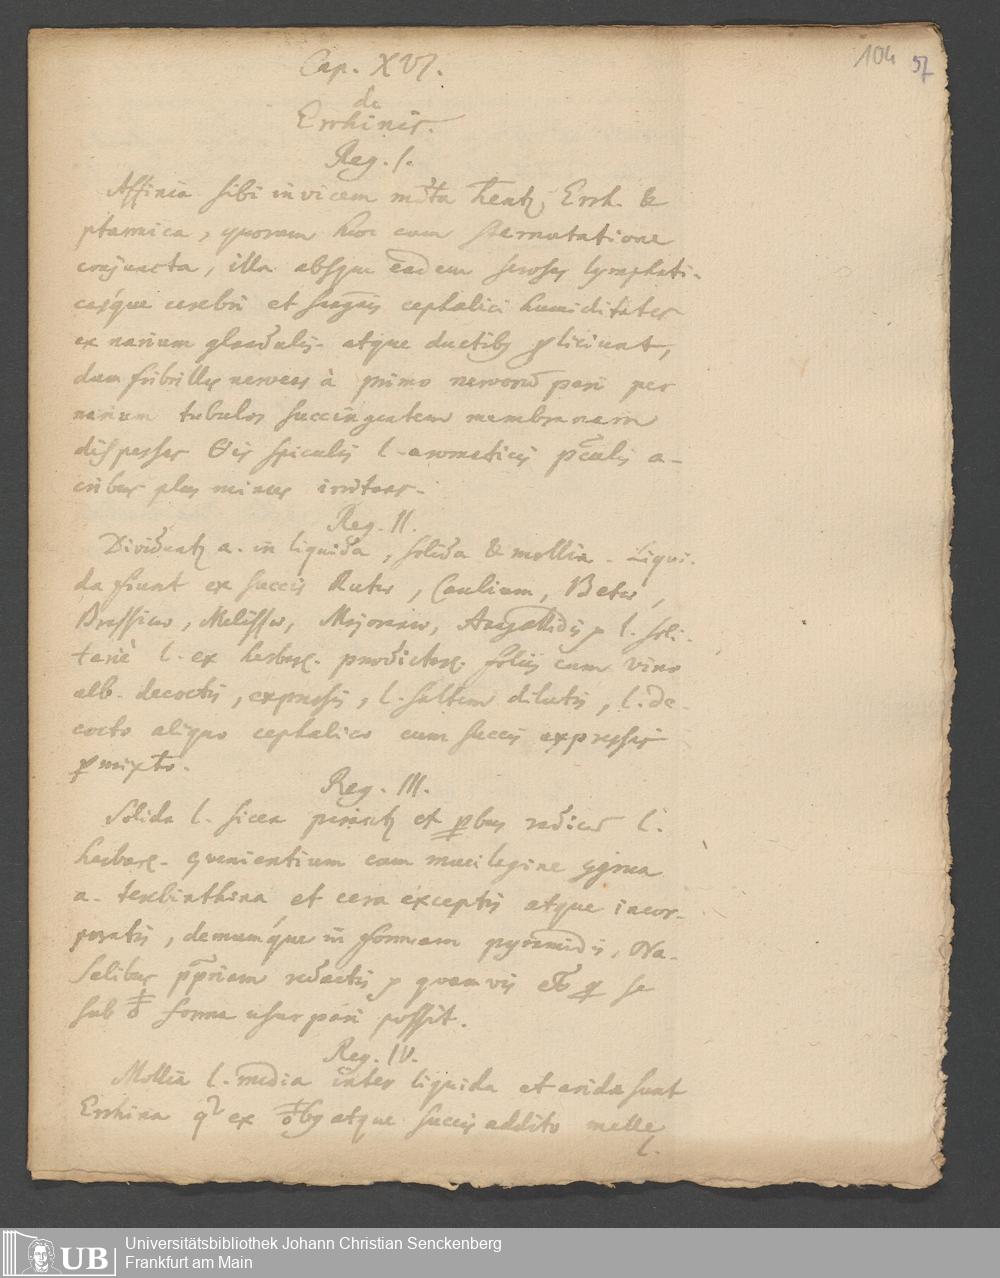 104 57
Cap. XVI.
de
Errhinis.
Reg. I.
Affinia sibi invicem m̄ta h̄entʒ, Errh. &
ptarmica, quorum hoc cum sternutatione
conjuncta, illa absque eadem serosas lymphati-
casque cerebri et cephalici humiditates
ex narium glandulis atque ductibꝰ ꝓliciunt,
dum fribrillas nerveas à primo nervorū pari per
narium tubulos succingentem membranam
dispersas spiculis l. aromaticis a-
cribus plus minus irritant.
Reg. II.
Dividuntʒ a. in liquida, solida & mollia. Liqui-
da fiunt ex succis Rutæ, Caulium, Betæ,
Brassicæ, Melissæ, Majoranæ, Anagallidis l. soli-
tariè l. ex herbarꝝ. prædictarꝝ. foliis cum vino
alb. decoctis, expressis, l. saltem dilutis, l. de-
cocto aliquo cephalico cum succis expressis
ꝑmixto.
Reg. III.
Solida l. sicca et radicum l.
herbarꝝ. qvenientium cum mucilagine
a. terbinthina et cera exceptis atque incor-
poratis, demumque in formam pyramidis, Na-
salibus redactis qvamvis ꝑ se
sub forma usurpari possit.
Reg. IV.
Mollia l. media inter liquida et arida sunt
Errhina ex atque succis addito melle
l.
UB Universitätsbibliothek Johann Christian Senckenberg
Frankfurt am Main